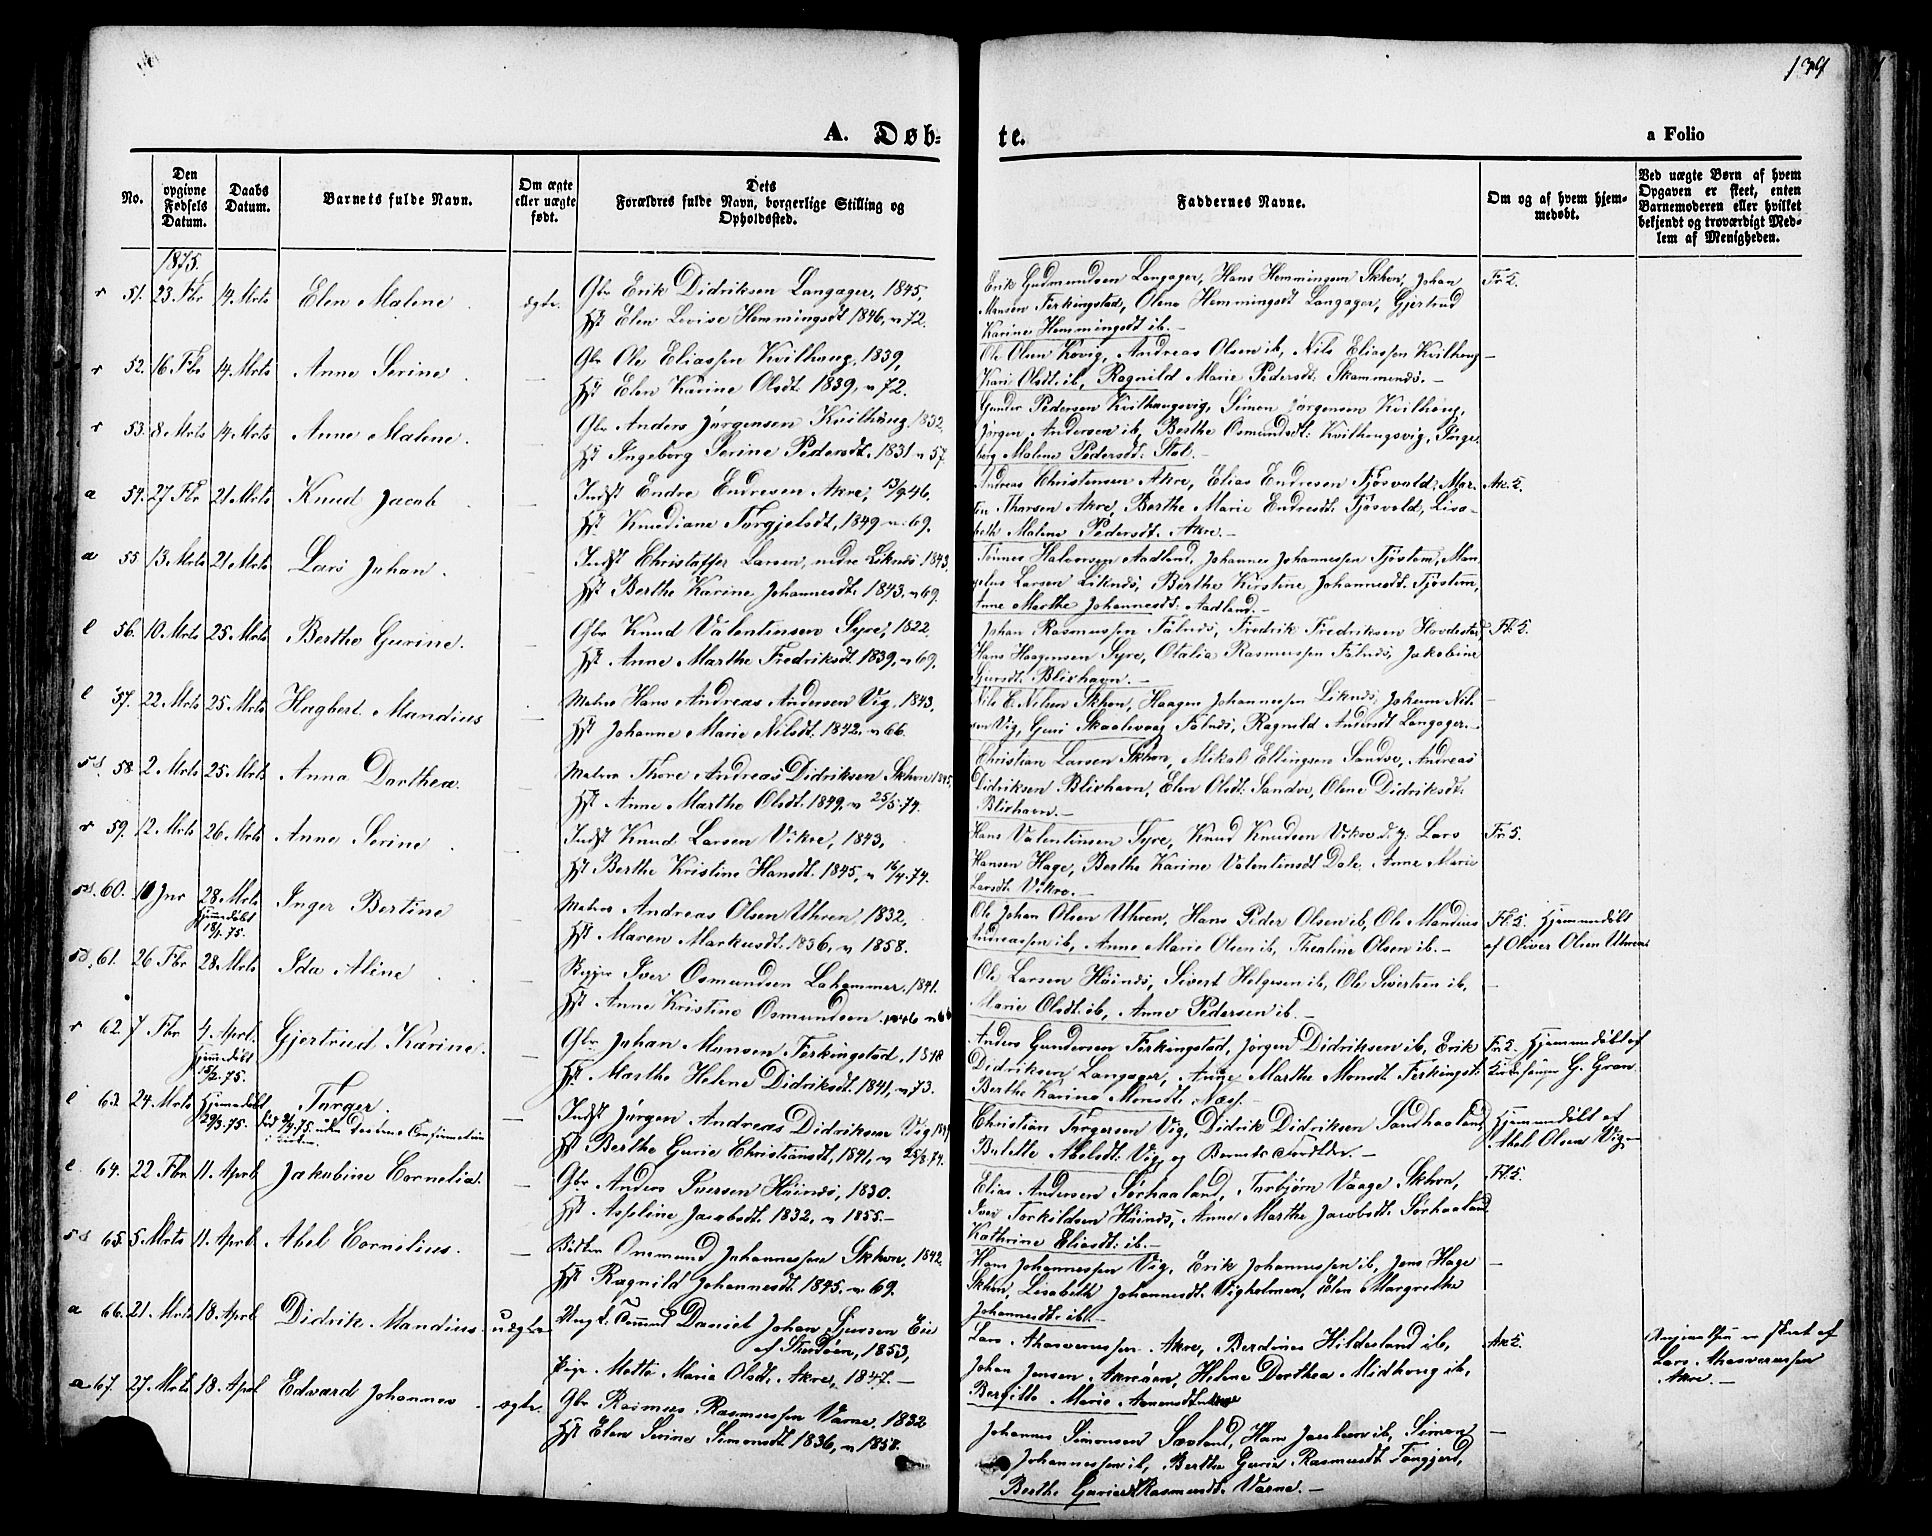 139
A. Døb-
te.
a Folio
No.
Den opgivne Fødsels Datum.
Daabs Datum.
Barnets fulde Navn.
Om ægte eller uægte født.
Dets Forældres fulde Navn, borgerlige Stilling og Opholdssted.
Faddernes Navne.
Om og af hvem hjem-
medøbt.
Ved uægte Børn af hvem
Opgaven er skeet, enten
Barnemoderen eller hvilket
bekjendt og troværdigt Med-
lem af Menigheden.
1875.
r 51. 23 Fbr 14 Mrts Elen Malene. ægte. Gbr Erik Didriksen Langager, 1845,
Hst Elen Lovise Hemmingsdt 1846, v 72.
Erik Gudmundsen Langager, Hans Hemmingsen Skhvn, Johan
Monsen Ferkingstad, Olena Hemmingsdt Langager, Gjertrud
Karine Hemmingsdt ib. —
r 52. 16 Fbr 14 Mrts Anne Serine. — Gbr Ole Eliassen Kvilhaug, 1839,
Hst Elen Karine Olsdt. 1839, v 72.
Ole Olsen Kovig, Andreas Olsen ib, Nils Eliassen Kvilhaug
Kari Olsdt. ib, Ragnild Marie Pedersdt. —
r 53. 8 Mrts 14 Mrts Anne Malene. — Gbr Anders Jørgensen Kvilhaug 1832,
Hst Ingeborg Serine Pedersdt. 1831 v 57.
Gunder Pedersen Kvilhaugsvig, Simon Jørgensen Kvilhaug,
Jørgen Andersen ib, Berthe Osmundsdt. Kvilhaugsvig, Inge-
borg Malene Pedersdt. Stol. —
a 54. 27 Fbr 21 Mrts Knud Jacob — Indst Endre Endresen Akre, 13/9 46.
Hst Knudiane Torgjelsdt, 1849 v. 69.
Andreas Christensen Akre, Elias Endresen Tjøsvold, Mar-
Akre, Berthe Marie Endresdt. Tjøsvold, Lisa-
beth Malene Pedersdt. Akre. —
a 55 13 Mrts 21 Mrts Lars Johan. — Indst Christoffer Larsen, nedre Liknes 1843.
Hst Berthe Karine Johannesdt. 1843. v 69.
Tønnes Halvorsen Aadland, Johannes Johannessen Tjøstem, Man-
gelus Larsen Liknes, Berthe Kirstine Johannesdt. Tjøstem,
Anne Marthe Johannesdt: Aadland. —
l 56. 10 Mrts 25 Mrts Berthe Gurine. — Gbr Knud Valentinsen Syre, 1822.
Hst Anne Marthe Fredriksdt. 1839, v 69.
Johan Rasmussen Falnes, Fredrik Fredriksen
Hans Haagensen Syre, Otalia Rasmussen Falnes, Jakobine
Blixhavn. —
l 57. 22 Mrts 25 Mrts Hagbert Mandius — Matros Hans Andreas Andersen Vig, 1843,
Hst Johanne Marie Nilsdt. 1842. v 66.
Nils E. Nilsen Skhvn, Haagen Johannessen Liknes, Jokum Nil-
sen Vig, Guri Skaalevaag Falnes, Ragnild Andersdt Langager. —
58. 2 Mrts 25 Mrts Anna Dorthea. — Matros Thore Andreas Didriksen Skhvn 1845,
Hst Anne Marthe Olsdt. 1849, v 25/5. 74.
Christian Larsen Skhvn, Mikal Ellingsen Sandve, Andreas
Didriksen Blixhavn, Elen Olsdt. Sandve, Olene Didriksdt.
Blixhavn. —
r 59. 12 Mrts 26 Mrts Anne Serine. — Indst Knud Larsen Vikre, 1843.
Hst Berthe Kristine Hansdt. 1845, v 16/4. 74.
Hans Valentinsen Syre, Knud Knudsen Vikre d. y. Lars
Hansen Hage, Berthe Karine Valentinsdt Dale, Anne Marie
Larsdt. Vikre. —
60. 10 Jnr 28 Mrts Hjemmedøbt 18/1. 75. Inger Bertine — Matros Andreas Olsen Uhren, 1832,
Hst Maren Markusdt. 1836, v 1858.
Ole Johan Olsen Uhren, Hans Peder Olsen ib, Ole Mandius
Andreassen ib, Anne Marie Olsen ib, Thealine Olsen ib. —
Hjemmedøbt
af Oliver Olsen Uhren
61. 26 Fbr 28 Mrts Ida Aline. — Iver Osmundsen Lahammer, 1841.
Hst Anne Kristine Osmundsen 1846 v 66
Ole Larsen Høines, Sivert Helgesen ib, Ole Sivertsen ib,
Marie Olsdt ib, Anne Pedersen ib. —
r 62. 7 Fbr 4 April. Hjemmedøbt 15/2. 75. Gjertrud Karine. — Gbr Johan Monsen Ferkingstad, 1848
Hst Marthe Helene Didriksdt. 1841, v 73.
Anders Gundersen Ferkingstad, Jørgen Didriksen ib, Erik
Didriksen Langager, Anne Marthe Monsdt. Ferkingst.
Berthe Karine Monsdt. Næss. —
Hjemmedøbt af
Kirkesanger G. Gran
l 63. 24 Mrts Hjemmedøbt 29/3. 75. Torger. — Indst Jørgen Andreas Didriksen Vig
Hst Berthe Gurie Christiansdt, 1841, v 25/3. 74.
Christian Torgersen Vig, Didrik Didriksen Sandhaaland
Bulette Abelsdt. Vig og Barnets Forældre. —
Hjemmedøbt af
Abel Olsen Vig —
l 64. 22 Fbr 11. April Jakobine Cornelia. — Gbr Anders Iversen Høines, 1830.
Hst Asseline Jacobsdt. 1832, v 1855. —
Elias Andersen Sørhaaland, Torbjørn Vaage Skhvn,
Iver Torkildsen Høines, Anne Marthe Jacobsdt. Sørhaaland
Kathrine Eliasdt: ib. —
65. 5 Mrts 11. April Abel Cornelius. — Ommund Johannessen Skhvn, 1842,
Hst Ragnild Johannesdt. 1845. v 69.
Hans Johannessen Vig, Erik Johannessen ib, Jens Hage
Skhvn, Lisabeth Johannesdt. Vigholmen, Elen Margrethe
Johannesdt: ibt. —
a 66. 21. Mrts 18 April Didrik Mandius. uægte Daniel Johan Sjursen Eie
1853,
Pige Mette Maria Olsdt. Akre, 1847. —
Lars Ahasverussen Akre, Berdines Hildesland ib,
Johan Jensen Akreøen, Helene Dorthea Midhaug ib,
Bergitte Marie
er skeet af
Lars Ahasverussen
Akre. —
a 67. 27. Mrts 18. April Edvard Johannes ægte. Gbr Rasmus Rasmussen Varne. 1832
Hst Elen Serine Simonsdt. 1836, v 1858.
Johannes Simonsen Sævland, Hans Jacobsen ib, Simon
Johannessen ib, Berthe Guria Rasmusdt.
Berthe Guria Rasmusdt. Varne. —